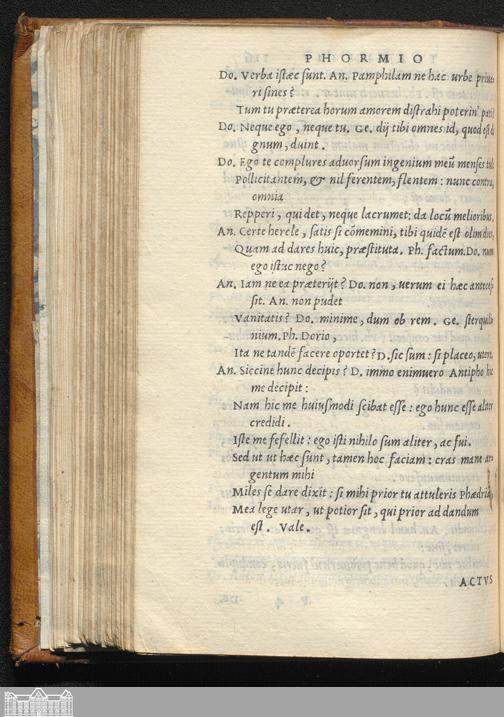 PHORMIO
Do. Verba istæc sunt. An. Pamphilam ne hac urbe priua
ri sines?
Tum tu præterea horum amorem distrahi poterin' pati?
Do. Neque ego, neque tu. Ge. dij tibi omnes id, quod est di
gnum, duint.
Do. Ego te complures aduorsum ingenium meũ menses tuli
Pollicitantem, & nil ferentem, flentem: nunc contra,
omnia
Repperi, qui det, neque lacrumet: da locũ melioribus,
An. Certe hercle, satis si cõmemini, tibi quidẽ est olim dies,
Quam ad dares huic, præstituta. Ph. factum. Do. num
ego istuc nego?
An. Iam ne ea præterijt? Do. non, uerum ei hæc antecеs
sit. An. non pudet
Vanitatis? Do. minime, dum ob rem. Ge. sterquili
nium. Ph. Dorio,
Ita ne tandẽ facere oportet? D. sic sum: si placeo, utere
An. Siccine hunc decipis? D. immo enimuero Antipho hic
me decipit:
Nam hic me huiusmodi scibat esse: ego hunc esse aliter
credidi.
Iste me fefellit: ego isti nihilo sum aliter, ac fui.
Sed ut ut hæc sunt, tamen hoc faciam: cras mane ar
gentum mihi
Miles se dare dixit: si mihi prior tu attuleris Phædria,
Mea lege utar, ut potior sit, qui prior ad dandum
est. Vale.
ACTVS